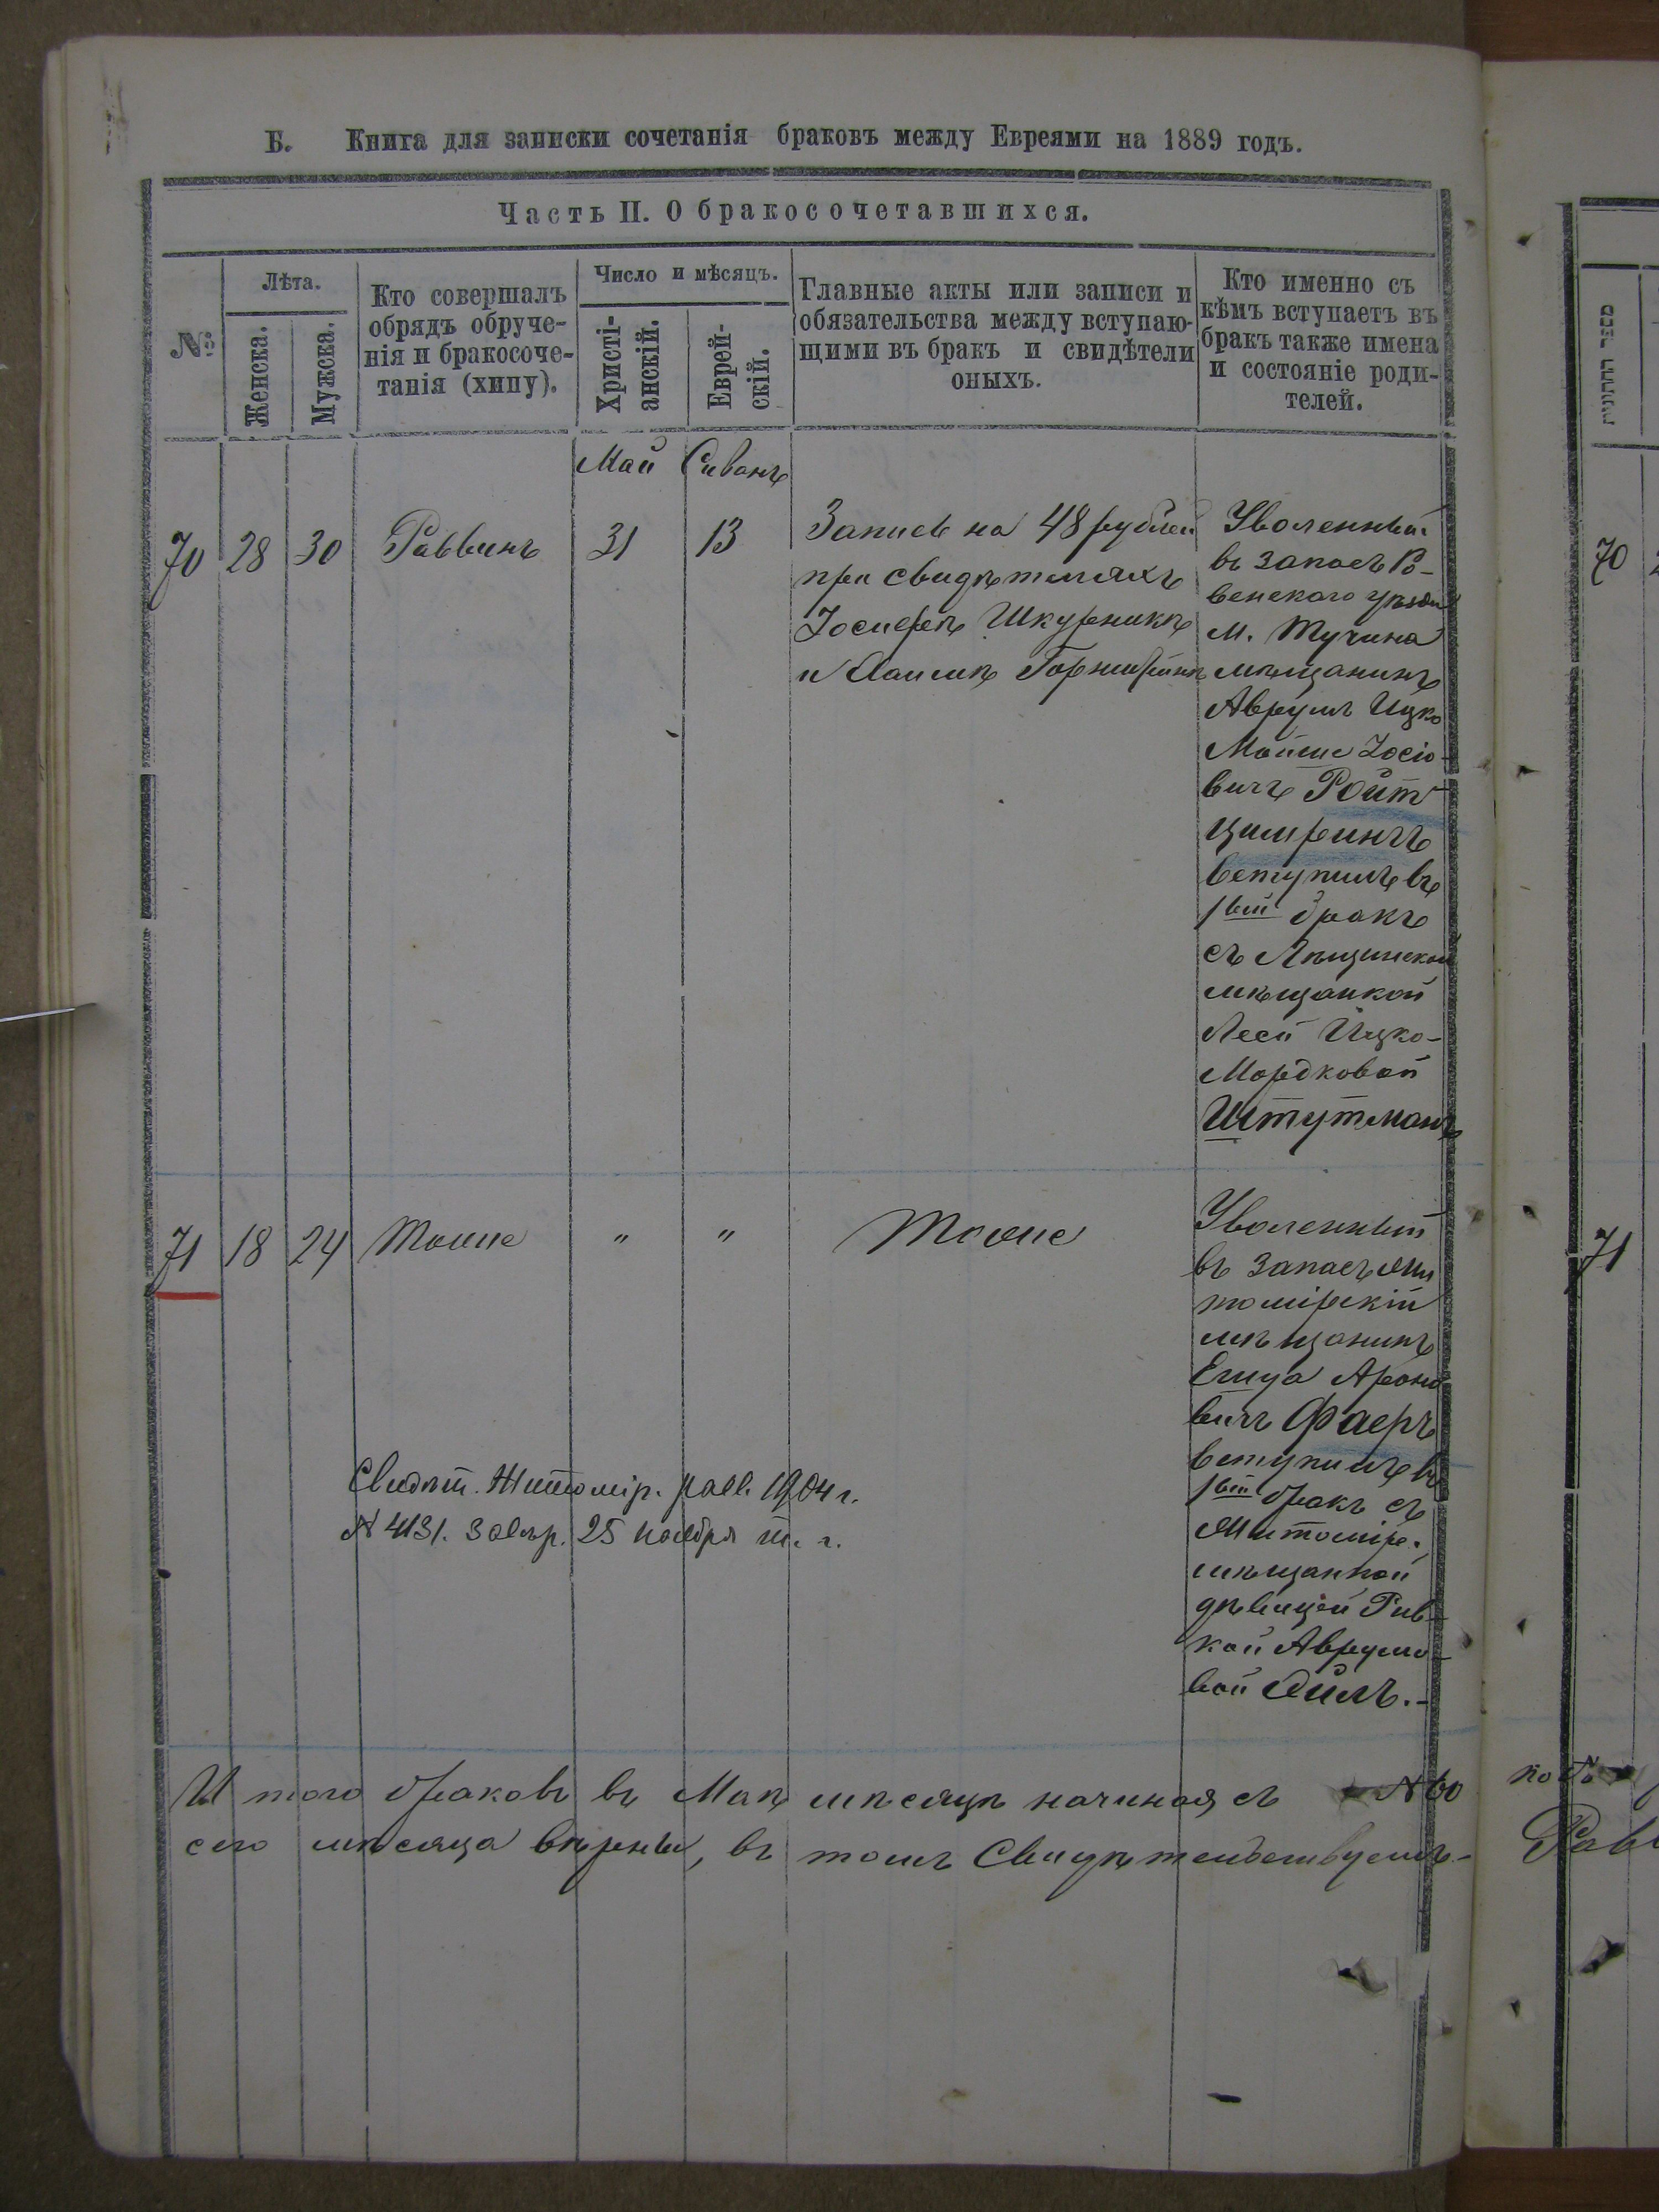 Б. Книга для записки сочетанія браковъ между Евреями на 1889 годъ.
Часть II. О бракосочетавшихся.
№
Лѣта.
Женска.
Мужска.
Кто совершалъ
обрядъ обруче-
нія и бракосоче-
танія (хипу).
Число и мѣсяцъ.
Христі-
анскій.
Еврей-
скій.
Главные акты или записи и
обязательства между вступаю-
щими въ бракъ и свидѣтели
оныхъ.
Кто именно съ
кѣмъ вступаетъ въ
бракъ также имена
и состояніе роди-
телей.
Май Сиванъ
70 28 30 Раввинъ 31 13
Запись на 48 рублей
при свидѣтеляхъ
Іосифѣ Шкурникѣ
и Хаимѣ
Уволенный
въ запасъ Ро-
венскаго уѣзда
м. Тучина
мѣщанинъ
Аврумъ Ицко
Мойше Іосіо-
вичъ Ройт
цимрингъ
вступилъ въ
1вый бракъ
съ
мѣщанкой
Лесй Ицко-
Мордковой
Штутманъ
71 18 24 Тоже " " Тоже
Уволенный
въ запасъ Жи
томірскій
мѣщанинъ
Ароно
вичъ Фаеръ
вступилъ въ
1вый бракъ съ
Житомір.
мѣщанкой
дѣвицей Рив-
кой Аврумо-
вой
Свидѣт. Житомір. равв. 1904 г.
N 4131. Завѣр. 25 ноября т. г.
Итого браковъ въ Маѣ мѣсяцѣ начиная съ N 60
сего мѣсяца вѣрны, въ томъ Свидѣтельствуемъ-
מספר החתונות
70
71
по №
Равв